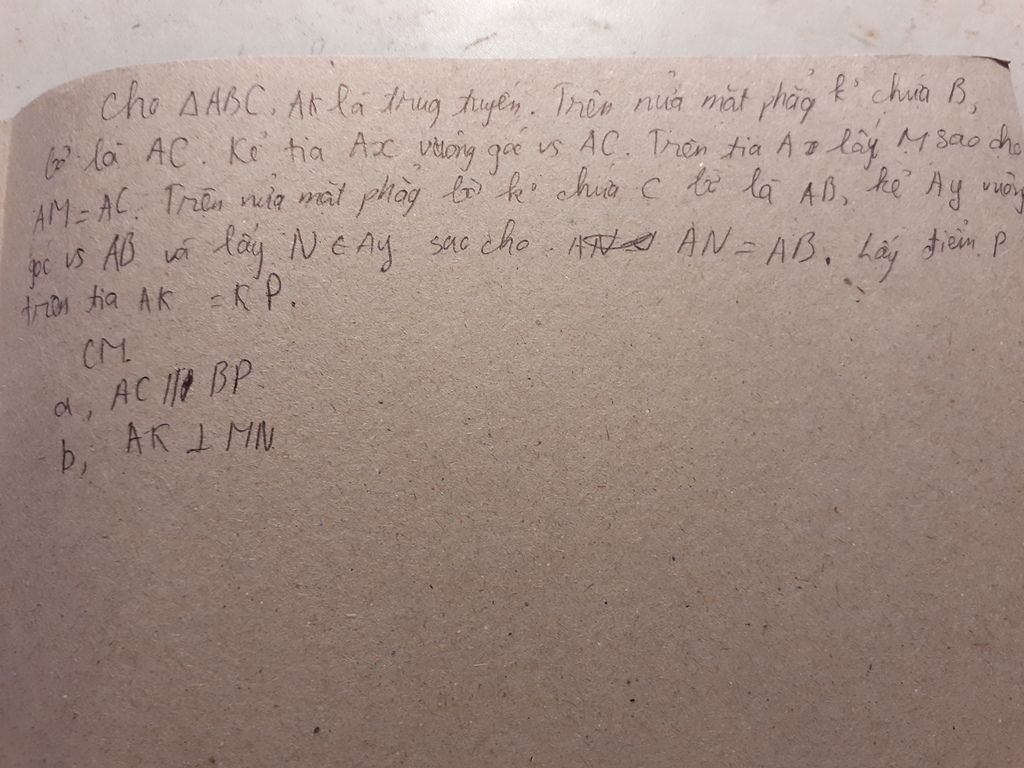 Cho ΔABC, AK là trug tuyến. Trên nửa mặt phẳg k° chứa B,
bờ là AC. Kẻ tia Ax vuông góc vs AC. Trên tia Ax lấy M sao cho
AM = AC. Trên nửa mặt phẳg bờ k° chứa C bờ là AB, kẻ Ay vuông
góc vs AB và lấy N ∈ Ay sao cho AN = AB. Lấy điểm P
trên tia AK = KP.
CM
a, AC // BP
b, AK ⊥ MN